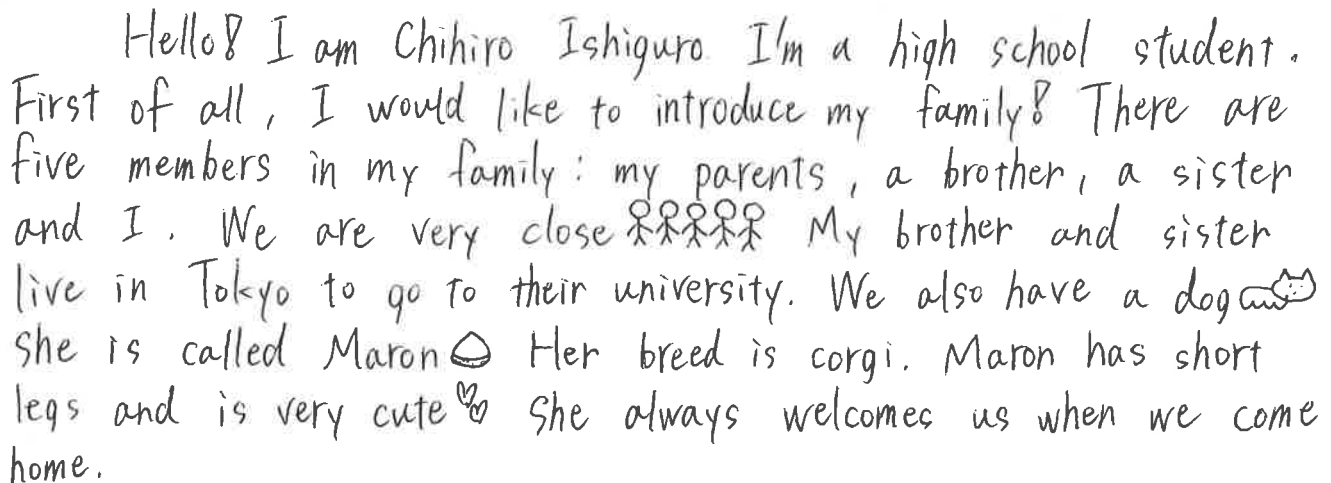 Hello! I am Chihiro Ishiguro I'm a high school student.
First of all, I would like to introduce my family! There are
five members in my family: my parents, a brother, a sister
and I. We are very close My brother and sister
live in Tokyo to go to their university. We also have a dog
she is called Maron Her breed is corgi. Maron has short
legs and is very cute She always welcomes us when we come
home.